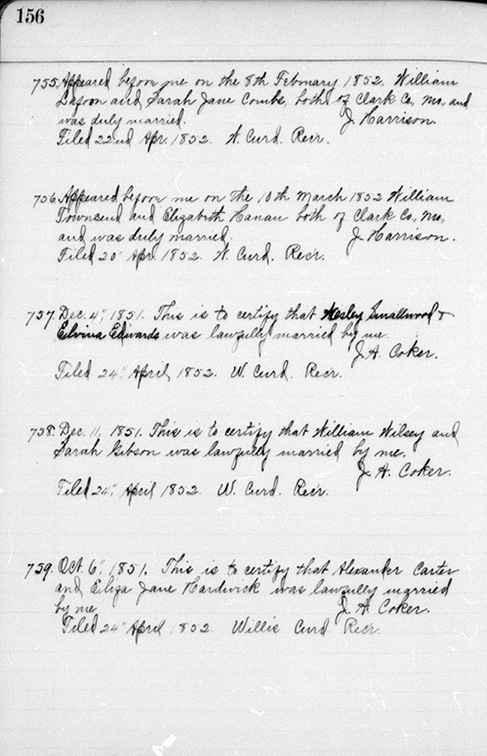 156
755. Appeared before me on the 8th February 1852. William
Lafoon and Sarah Jane Combs, both of Clark Co, Mo, and
was duly married. J. Harrison.
Filed 22nd Apr. 1852. W. Curd. Recr.
756. Appeared before me on the 10th March 1852 William
Townsend and Elizabeth Hanan both of Clark Co, Mo,
and was duly married. J. Harrison.
Filed 20" Apr. 1852. W. Curd. Recr.
757. Dec. 4", 1851. This is to certify that Wesley Smallwood &
Elvina Edwards was lawfully married by me.
J. A. Coker.
Filed 24" April, 1852. W. Curd. Recr.
758. Dec. 11, 1851. This is to certify that William Wilsey and
Sarah Gibson was lawfully married by me.
J. A. Coker.
Filed 24", April 1852. W. Curd. Recr.
759. Oct. 6", 1851. This is to certify that Alexander Carter
and Eliza Jane Hardwick was lawfully married
by me J. A. Coker.
Filed 24" April 1852. Willis Curd Recr.